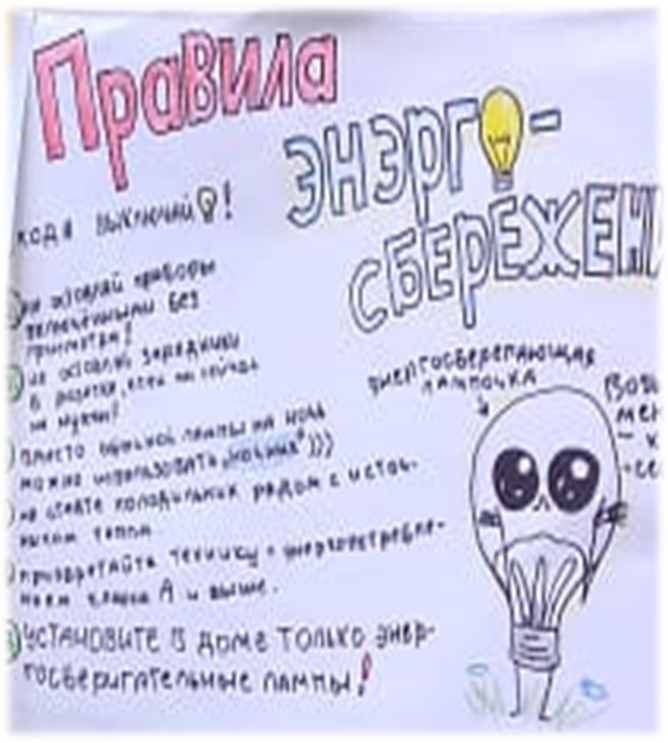 Правила
ЭНЭРГО-
СБЕРЕЖЕНИ
ХОДЯ ВЫКЛЮЧАЙ !
НЕ ОСТАВЛЯЙ ПРИБОРЫ
ВКЛЮЧЁННЫМИ БЕЗ
ПРИСМОТРА!
НЕ ОСТАВЛЯЙ ЗАРЯДНИКИ
В РОЗЕТКЕ, ЕСЛИ ОН СЕЙЧАС
НЕ НУЖЕН!
ВМЕСТО ОБЫЧНОЙ ЛАМПЫ НА НОЧЬ
МОЖНО ИСПОЛЬЗОВАТЬ „НОЧНИК“)))
НЕ СТАВТЕ ХОЛОДИЛЬНИК РЯДОМ С ИСТОЧ-
НИКОМ ТЕПЛА
ПРИОБРЕТАЙТЕ ТЕХНИКУ С ЭНЕРГОПОТРЕБЛЕ-
НИЕМ КЛАССА А И ВЫШЕ.
УСТАНОВИТЕ В ДОМЕ ТОЛЬКО ЭНЕР-
ГОСБЕРИГАТЕЛЬНЫЕ ЛАМПЫ!
ЭНЕРГОСБЕРЕГАЮЩАЯ
ЛАМПОЧКА